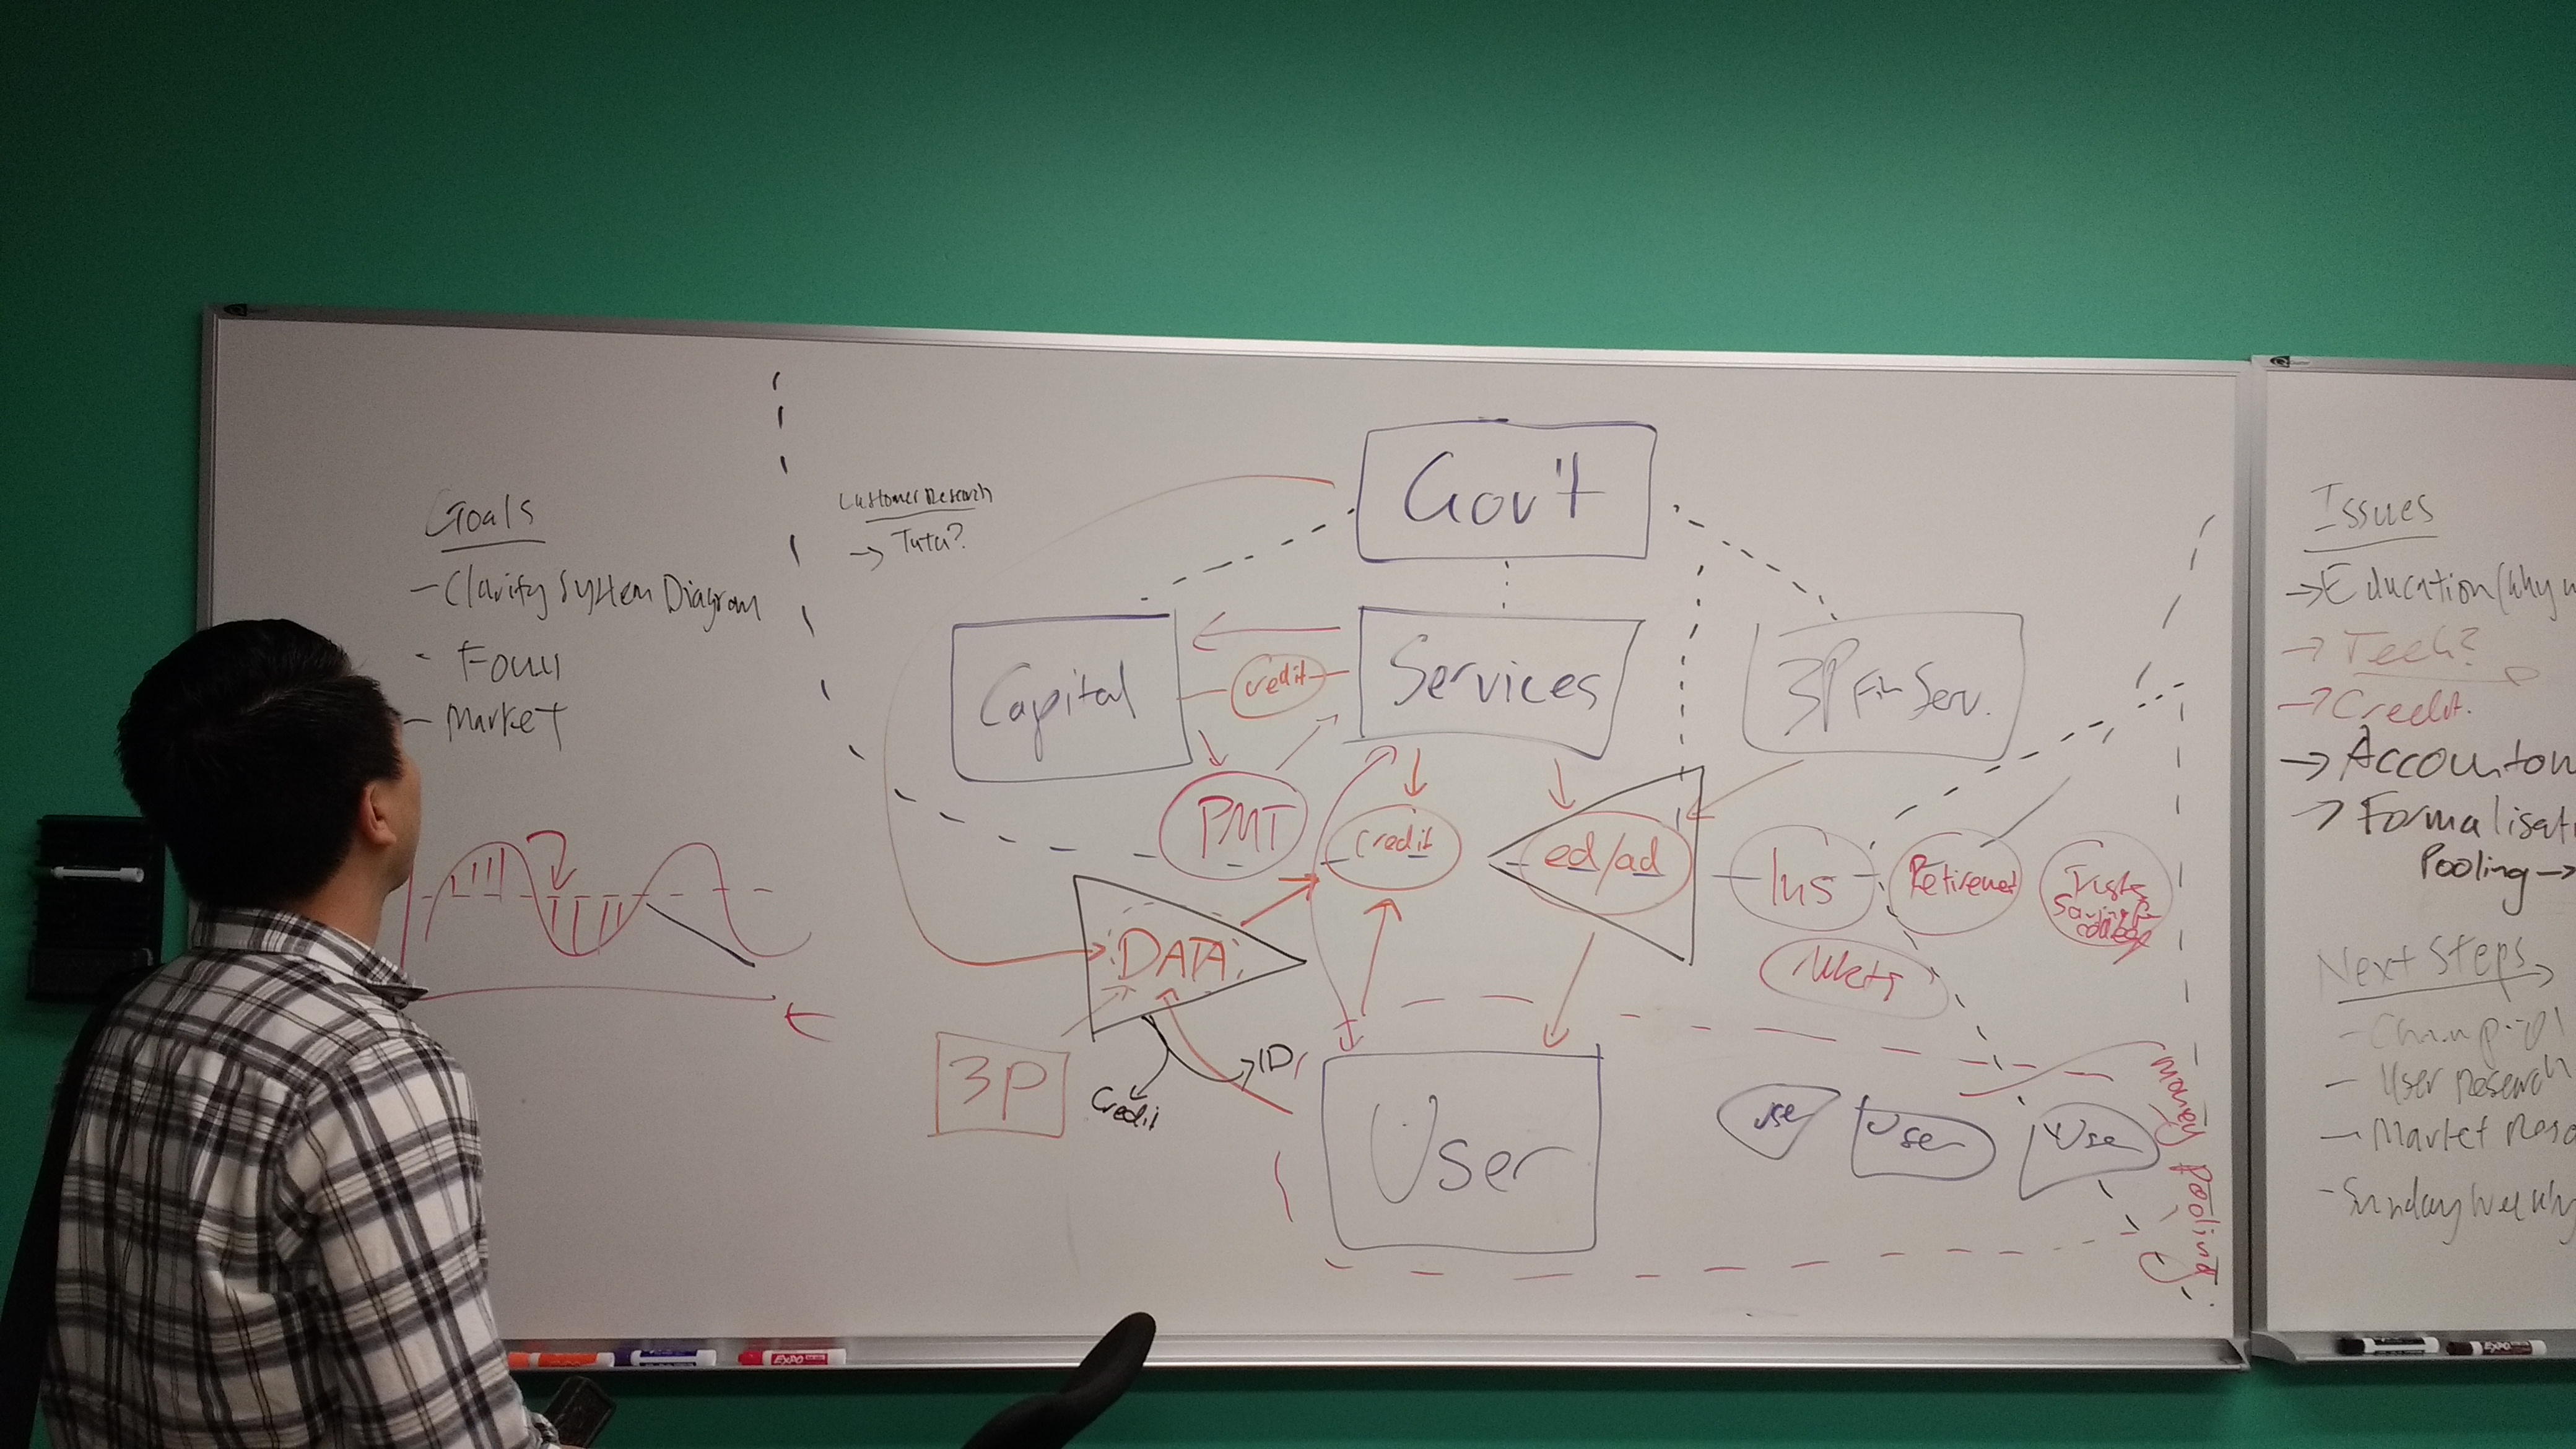 Goals
- Clarify System Diagram
- Focus
- Market
Customer Research
→ Tutu?
Gov't
Capital
credit
Services
3P Fin Serv.
PMT
credit
ed/ad
Ins
Retirement
Trusts
Saving for
college
Mkts
DATA
3P
Credit
ID
User
User
User
User
Money Pooling
Issues
→ Education (why
→ Tech?
→ Credit.
→ Accountan
→ Formalisati
Pooling →
Next Steps
- User Research
- Market Reso
- Sunday Weekly
EXPO
EXPO